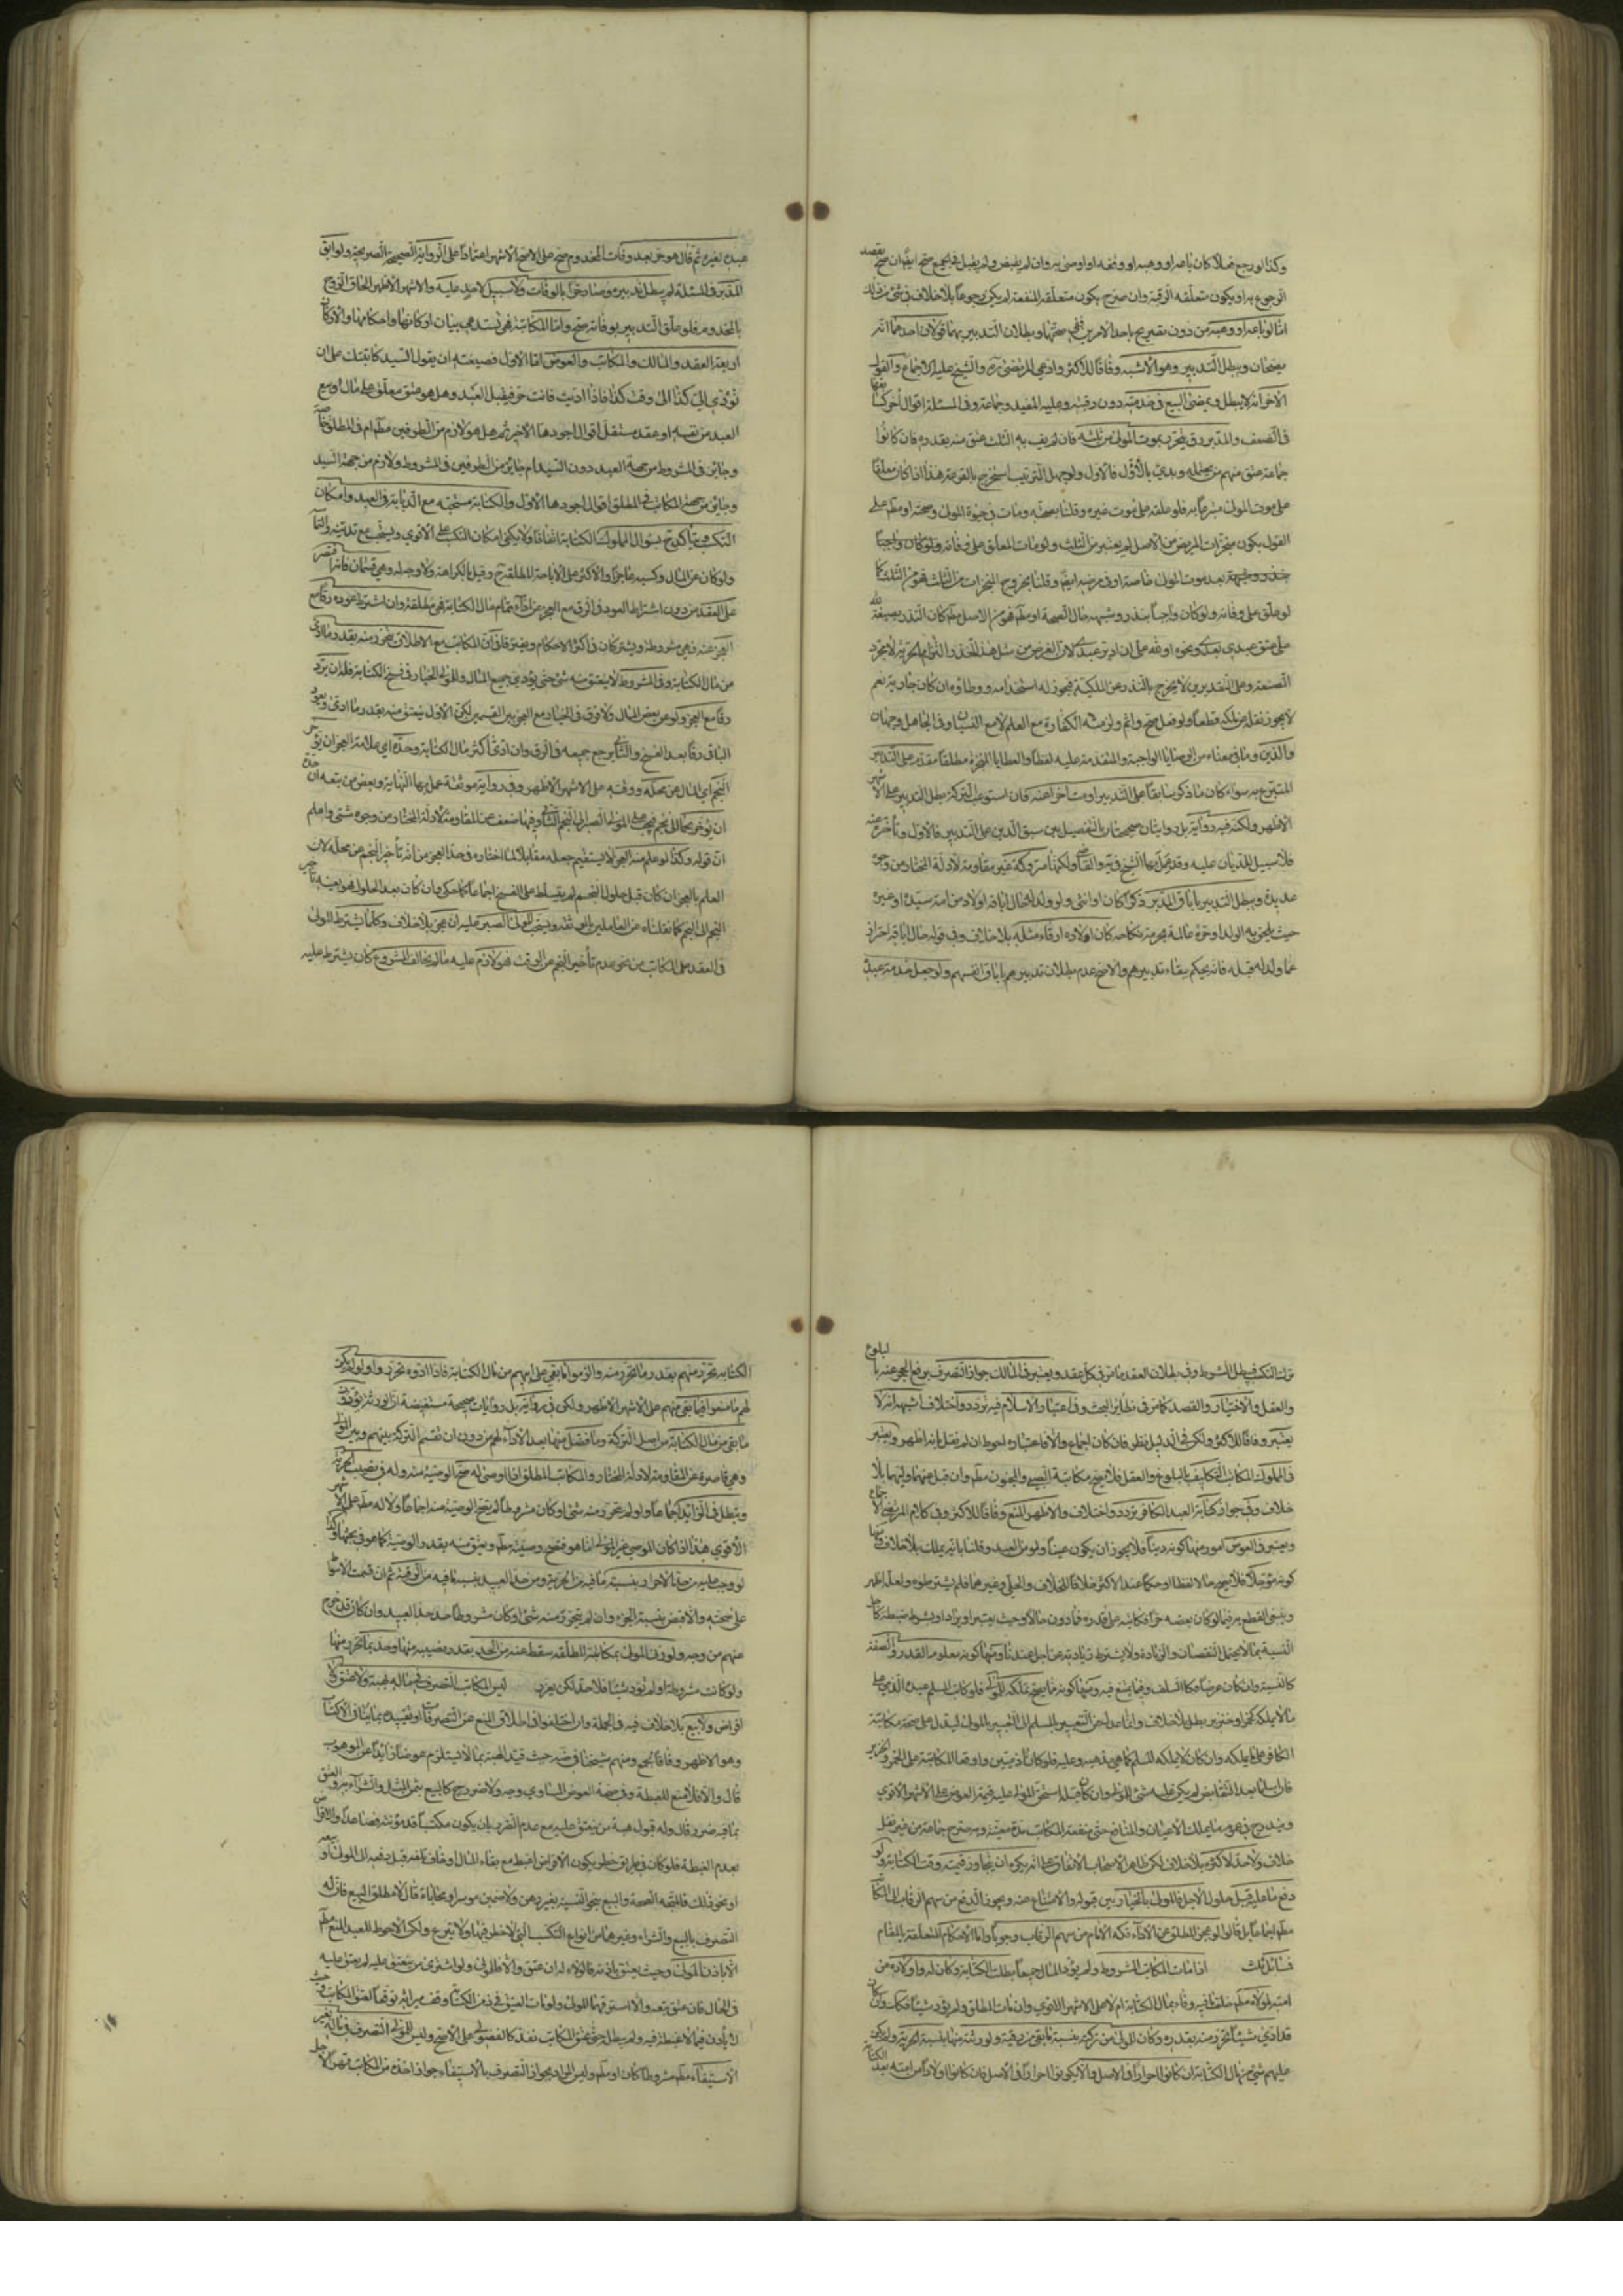 وكذا لو رجع فعلا كان باعه او وهبه او وقفه او اوصى به وان لم يقبض ولم يقبل في الجميع صح ايضا ان صح بقصد
الرجوع به او يكون متعلقه الرقبة وان صرح بكون متعلقه المنفعة لم يكن رجوعا بلا خلاف في شئ من ذلك
اما لو باعه او وهبه من دون تصريح باحد الامرين ففي صحتهما وبطلان التدبير بهما قولان احدهما انه
يصحان ويبطل التدبير وهو الاشبه وفاقا للاكثر وادعى المرتضى ره والشيخ عليه الاجماع والقول
الاخر انه لا يبطل ويمضى البيع في خدمته دون رقبته وعليه المفيد وجماعة وفى المسئلة اقوال اخر كلها
في الضعف والمدبر رق يتحرر بموت المولى من ثلثه فان لم يف به الثلث عتق منه بقدره فان كانوا
جماعة عتق منهم من يحتمله وبدئ بالاول فالاول ولو جهل الترتيب استخرج بالقرعة هذا اذا كان معلقا
على موت المولى متبرعا به فلو علقه على موت غيره وقلنا بصحته ومات في حيوة المولى وصحته او مطم على
القول بكون منجزات المريض من الاصل لم يعتبر من الثلث ولو مات المعلق على وفاته ولو كان واجبا
بنذر وشبهه بعد موت المولى خاصة او في مرضه ايضا وقلنا بخروج المنجزات من الثلث فهو من الثلث كما
لو علق على وفاته ولو كان واجبا بنذر وشبهه حال الصحة او مطم فهو من الاصل مطم كان النذر بصيغة لله
على عتق عبدي بعدي ونحوه او لله على ان ادبر عبدي لان الغرض من مثل هذا النذر التزام الحرية لا مجرد
الصيغة وعلى التقديرين لا يخرج بالنذر عن الملكية فيجوز له استخدامه ووطؤه ان كان جارية نعم
لا يجوز نقله عن ملكه قطعا ولو فعل صح واثم ولزمته الكفارة مع العلم لا مع النسيان وفى الجاهل وجهان
والدين وما في معناه من الوصايا الواجبة والمتقدمة عليه لفظا والعطايا المنجزة مطلقا مقدم على التدبير
المتبرع به سواء كان ما ذكر سابقا على التدبير او متاخرا عنه فان استوعب التركة بطل التدبير على الاشهر
الاظهر ولكنه فيه رواية بل روايتان صحيحتان بالتفصيل بين سبق الدين على التدبير فالاول وتأخره عنه
فلا سبيل للديان عليه وقد عمل بها الشيخ في ية والقاضي ولكنها متروكة غير مقاومة لادلة المختار من وجوه
عديدة ويبطل التدبير باباق المدبر ذكرا كان او انثى ولو ولد له حال اباقه اولاد من امة سيده او غيره
حيث يلحق به الولد او حرة عالمة بحرمة نكاحه كان اولاده ارقاء مثله بلا خلاف وفى قوله حال اباقه احتراز
عما ولد له قبله فانه يحكم ببقاء تدبيرهم والاصح عدم بطلان تدبيرهم باباق انفسهم ولو جعل خدمة عبده
عبده لغيره ثم قال هو حر بعد وفات المخدوم صح على الاصح الاشهر اعتمادا على الرواية الصحيحة الصريحة ولو ابق
المدبر في المسئلة لم يبطل تدبيره وصار حرا بالوفات ولا سبيل لاحد عليه والاشهر الاظهر الحاق الزوج
بالمخدوم فلو علق التدبير بوفاته صح واما المكاتبة فهى تستدعى بيان اركانها واحكامها والاركان
اربعة العقد والمالك والمكاتب والعوض اما الاول فصيغته ان يقول السيد كاتبتك على ان
تؤدي الى كذا الى وقت كذا فاذا اديت فانت حر فيقبل العبد وهل هو عتق معلق على مال او بيع
العبد من نفسه او عقد مستقل اقوال اجودها الاخير ثم هل هو لازم من الطرفين مطم ام في المطلق خاصة
وجايز في المشروط من جهة العبد دون السيد ام جايز من الطرفين في المشروط ولازم من جهة السيد
وجايز من جهة المكاتب في المطلق اقوال اجودها الاول والكتابة مستحبة مع الديانة في العبد وامكان
التكسب ويتأكد ح بسؤال المملوك الكتابة اتفاقا ولا يكفى امكان التكسب على الاقوى
على العقد من دون اشتراط العود في الرق مع العجز عن اداء تمام مال الكتابة فهى مطلقة وان اشترط عوده رقا مع
العجز عنه فهى مشروطة ويشتركان في اكثر الاحكام ويفترقان في ان المكاتب مع الاطلاق يتحرر منه بقدر ما ادى
من مال الكتابة وفى المشروط لا ينعتق منه شئ حتى يؤدي جميع المال وللمولى الخيار في فسخ الكتابة فله ان يرد
رقا مع العجز ولو عن بعض المال ولا فرق في الخيار مع العجز بين القسمين لكن الاول ينعتق منه بقدر ما ادى ويعود
الباقى رقا بعد الفسخ والثاني يرجع جميعه في الرق وان ادى اكثر مال الكتابة وحده اي علامة العجز ان يؤخر
النجم اي المال عن محله ووقته على الاشهر الاظهر وفى رواية موثقة عمل بها النهاية وبعض من تبعه ان حده
ان يؤخر نجما الى نجم فيجب على المولى الصبر الى النجم الثاني وفيها ضعف عن المقاومة لادلة المختار من وجوه شتى واعلم
ان قوله وكذا لو علم منه العجز لا يستقيم جعله مقابلا لما اختاره في حد العجز من انه تأخير النجم عن محله لان
العلم بالعجز ان كان قبل حلول النجم لم يتسلط على الفسخ اجماعا كما حكى وان كان بعد الحلول فهو بعينه تأخير
النجم الى النجم كما نقلناه عن العاملين بالموثقة ويستحب للمولى الصبر عليه ان عجز بلا خلاف وكلما يشترط المولى
في العقد على المكاتب من نحو عدم تأخير النجم عن الوقت فهو لازم عليه ما لم يخالف المشروع كان يشترط عليه
ترك التكسب فيبطل الشرط وفى بطلان العقد ما مر في كل عقد ويعتبر في المالك جواز التصرف برفع الحجر عنه بالبلوغ
والعقل والاختيار والقصد كما مر في نظاير البحث وفى اعتبار الاسلام فيه تردد واختلاف اشبهه انه لا
يعتبر وفاقا للاكثر ولكن في الدليل نظر فان كان اجماع والا فاعتباره احوط ان لم نقل بانه اظهر ويعتبر
في المملوك المكاتب التكليف بالبلوغ والعقل فلا يصح مكاتبة الصبي والمجنون مطم وان قبل عنهما وليهما بلا
خلاف وفى جواز كتابة العبد الكافر تردد واختلاف والاظهر المنع وفاقا للاكثر وفى كلام المرتضى الاجماع
ويعتبر في العوض امور منها كونه دينا فلا يجوز ان يكون عينا ولو من العبد وقلنا بانه يملك بلا خلاف ومنها
كونه مؤجلا فلا يصح حالا لفظا او حكما عند الاكثر خلافا للخلاف والحلى وغيرهما فلم يشترطوه ولعله اظهر
النسية بما لا يحتمل النقصان والزيادة ولا يشترط زيادته عن اجل عندنا ومنها كونه معلوم القدر والصفة
كالنسية وان كان عرضا فكالسلف ومنها كونه مما يصح تملكه للمولى فلو كاتب المسلم عبده الذمي على
ما لا يملكه كخمر او خنزير بطل بلا خلاف وانما عدل عن التعبير بالمسلم الى التعبير بالمولى ليدل على صحة مكاتبة
الكافر على ما يملكه وان كان لا يملكه المسلم كما هى مذهبه وعليه فلو كانا ذميين واوقعا المكاتبة على الخمر والخنزير
فان اسلما بعد التقابض لم يكن عليه شئ للمولى وان كان قبله استحق المولى عليه قيمة العوض على الاشهر الاقوى
ويندرج في عموم ما يملك الاعيان والمنافع حتى منفعة المكاتب مدة معينة وبه صرح جماعة من غير نقل
خلاف ولا حد لاكثره بلا خلاف لكن ظاهر الاصحاب الاتفاق على انه يكره ان يتجاوز قيمته وقت الكتابة ولو
دفع ما عليه قبل حلول الاجل فالمولى بالخيار بين قبوله والامتناع عنه ويجوز الدفع من سهم الرقاب الى المكاتب
مطم اجماعا بل قالوا لو عجز المطلق عن الاداء فكه الامام من سهم الرقاب وجوبا واما الاحكام المتعلقة بالمقام
فمسائل ثلث اذا مات المكاتب المشروط ولم يؤد المال جميعا بطلت الكتابة وكان له واولاده من
امته لمولاه مطم خلف ما فيه وفاء بمال الكتابة ام لا على الاشهر الاقوى وان مات المطلق ولم يؤد شيئا فكذلك وان كان
قد ادى شيئا تحرر منه بقدره وكان للمولى من تركته بنسبة ما بقى من رقيته ولورثته منها بنسبة الحرية ولم يكن
عليهم شئ من مال الكتابة ان كانوا احرارا في الاصل والا يكونوا احرارا في الاصل فان كانوا اولادا من امته بعد الكتابة
الكتابة تحرر منهم بقدر ما تحرر منه والزموا ما بقى على ابيهم من مال الكتابة فاذا ادوه تحرروا ولو لم يكن
لهم مال سعوا فيما بقى منهم على الاشهر الاظهر ولكن في رواية بل روايات صحيحة مستفيضة ان الورثة يؤدون
ما بقى من مال الكتابة من اصل التركة وما فضل منها بعد الاداء لهم من دون ان تقسم التركة بينهم وبين المولى
وهى قاصرة عن المقاومة لادلة المختار والمكاتب المطلق اذا اوصى له صح الوصية منه وله في نصيب الحرية
وبطل في الزايد اجماعا ولو لم يتحرر منه شئ او كان مشروطا لم تصح الوصية منه اجماعا ولا له مطم على الاشهر
الاقوى هذا اذا كان الموصي غير المولى اما هو فتصح وصيته مطم ويعتق منه بقدر الوصية كما هو في بحثها ولو
لو وجب عليه من حد الاحرار بنسبة ما فيه من الحرية ومن حد العبيد بنسبة ما فيه من الرقية ثم ان قسمت الاسواط
على صحته والا قبض بنسبة الجزء وان لم يتحرر منه شئ او كان مشروطا حد حد العبيد وان كان قد خرج
عنهم من وجه ولو زنى المولى بمكاتبته المطلقة سقط عنه من الحد بقدر نصيبه منها وحد بما تحرر منها
ولو كانت مشروطة او لم تؤد شيئا فلا حد لكن يعزر ليس للمكاتب التصرف في ماله بهبة ولا عتق ولا
اقراض ولا بيع بلا خلاف فيه في الجملة وان اختلفوا في اطلاق المنع عن التصرفات او تقييده بما ينافي الاكتساب
وهو الاظهر وفاقا لجمع ومنهم شيخنا في ضه حيث قيد الهبة بما لا يستلزم عوضا زايدا عن الموهوب
قال والا فلا منع للغبطة وفى صحة العوض المساوي وجه ولا ضرر ح كالبيع بثمن المثل والشراء به والعتق
بما فيه ضرر قال وله قبول هبة من ينعتق عليه مع عدم الضرر بان يكون مكتسبا قدر مؤنته فصاعدا والاقراض
بعدم الغبطة فلو كان في طريق خطر يكون الاقراض اغبط مع بقاء المال او خاف تلفه قبل دفعه الى المولى او بيعه
او نحو ذلك فالمتجه الصحة والبيع نحو النسية بغير رهن ولا ضمين موسر او محاباة قال لا مطلق البيع فان له
التصرف بالبيع والشراء وغيرهما من انواع التكسب التي لا خطر فيها ولا تبرع ولكن الاحوط للعبد المنع مطم
الا باذن المولى وحيث يعتق باذنه فالولاء له ان عتق والا فللمولى ولو اشترى من ينعتق عليه لم يعتق عليه
في الحال فان عتق تبعه والا استرقهما المولى ولو مات العتيق في زمن الكتابة وقف ميراثه توقعا لعتق المكاتب وحيث
لا يأذن فيما لا غبطة فيه ولم يبطل حتى عتق المكاتب نفذ كالفضولي على الاصح وليس للمولى التصرف في ماله بغير
الاستيفاء مطم مشروطا كان او مطم وليس المراد بجواز التصرف بالاستيفاء جواز اخذه من المكاتب قهرا لاجل